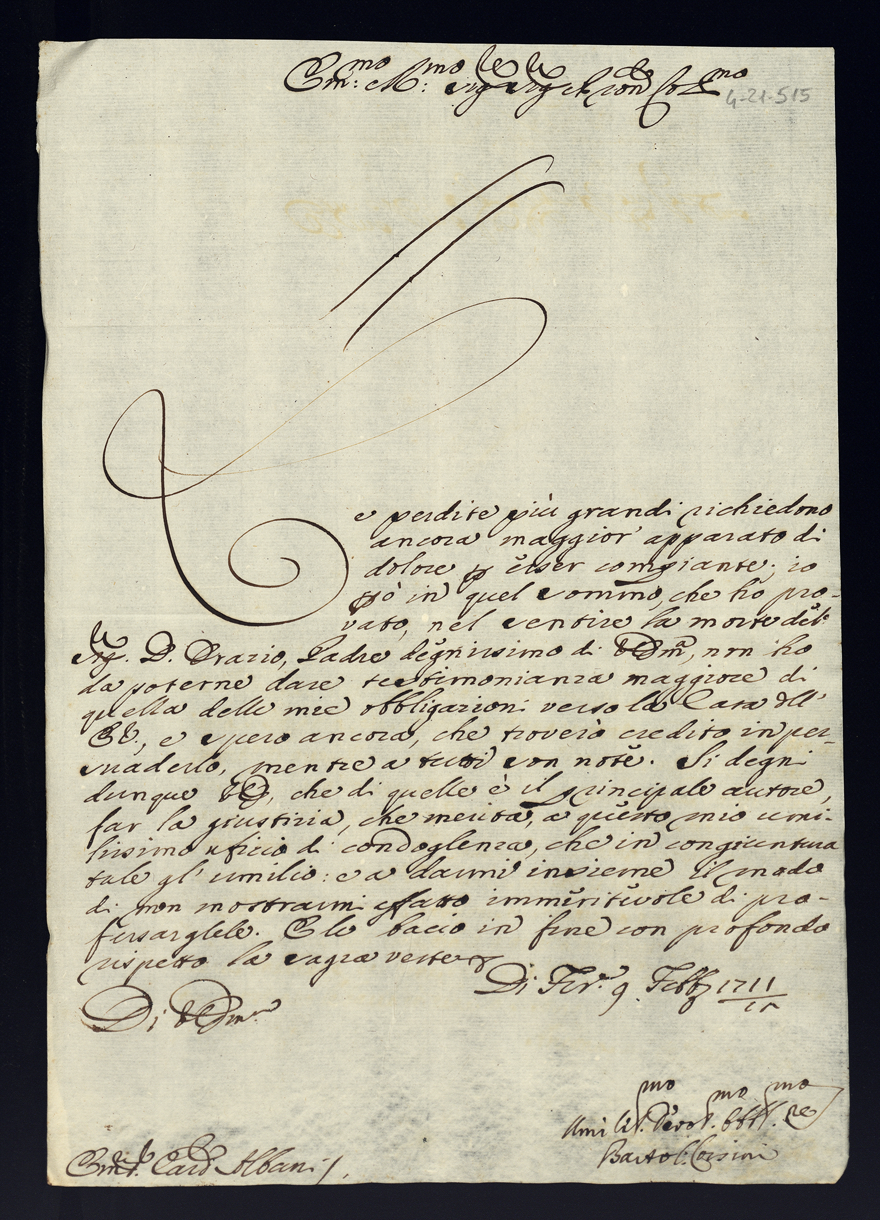 Em.mo e R.mo Sig.re Sig.re e P.ron Col.mo
4-21-515
Le perdite più grandi richiedono
ancora maggior' apparato di
dolore p esser compiante; io
però in quel sommo, che ho pro-
vato, nel sentire la morte del
Sig.re D. Orazio, Padre degnissimo di VEm.a, non ho
da poterne dare testimonianza maggiore di
quella delle mie obbligazioni verso la Casa dell'
EV., e spero ancora, che troverò credito in per-
suaderlo, mentre a tutti son note. Si degni
dunque VE, che di quelle è il principale autore,
far la giustizia, che merita, a questo mio umi-
lissimo ufizio di condoglienza, che in congiuntura
tale gl' umilio: e a darmi insieme il modo
di non mostrarmi affatto immeritevole di pro-
fessarglele. E le bacio in fine con profondo
rispetto la sagra veste
Di Fir.e 9. Febb 1711
Di VEm.a
Umiliss.mo Devot.mo Obbl.mo Se.re
Bartol. Corsini
Em. Sig. Card. Albani